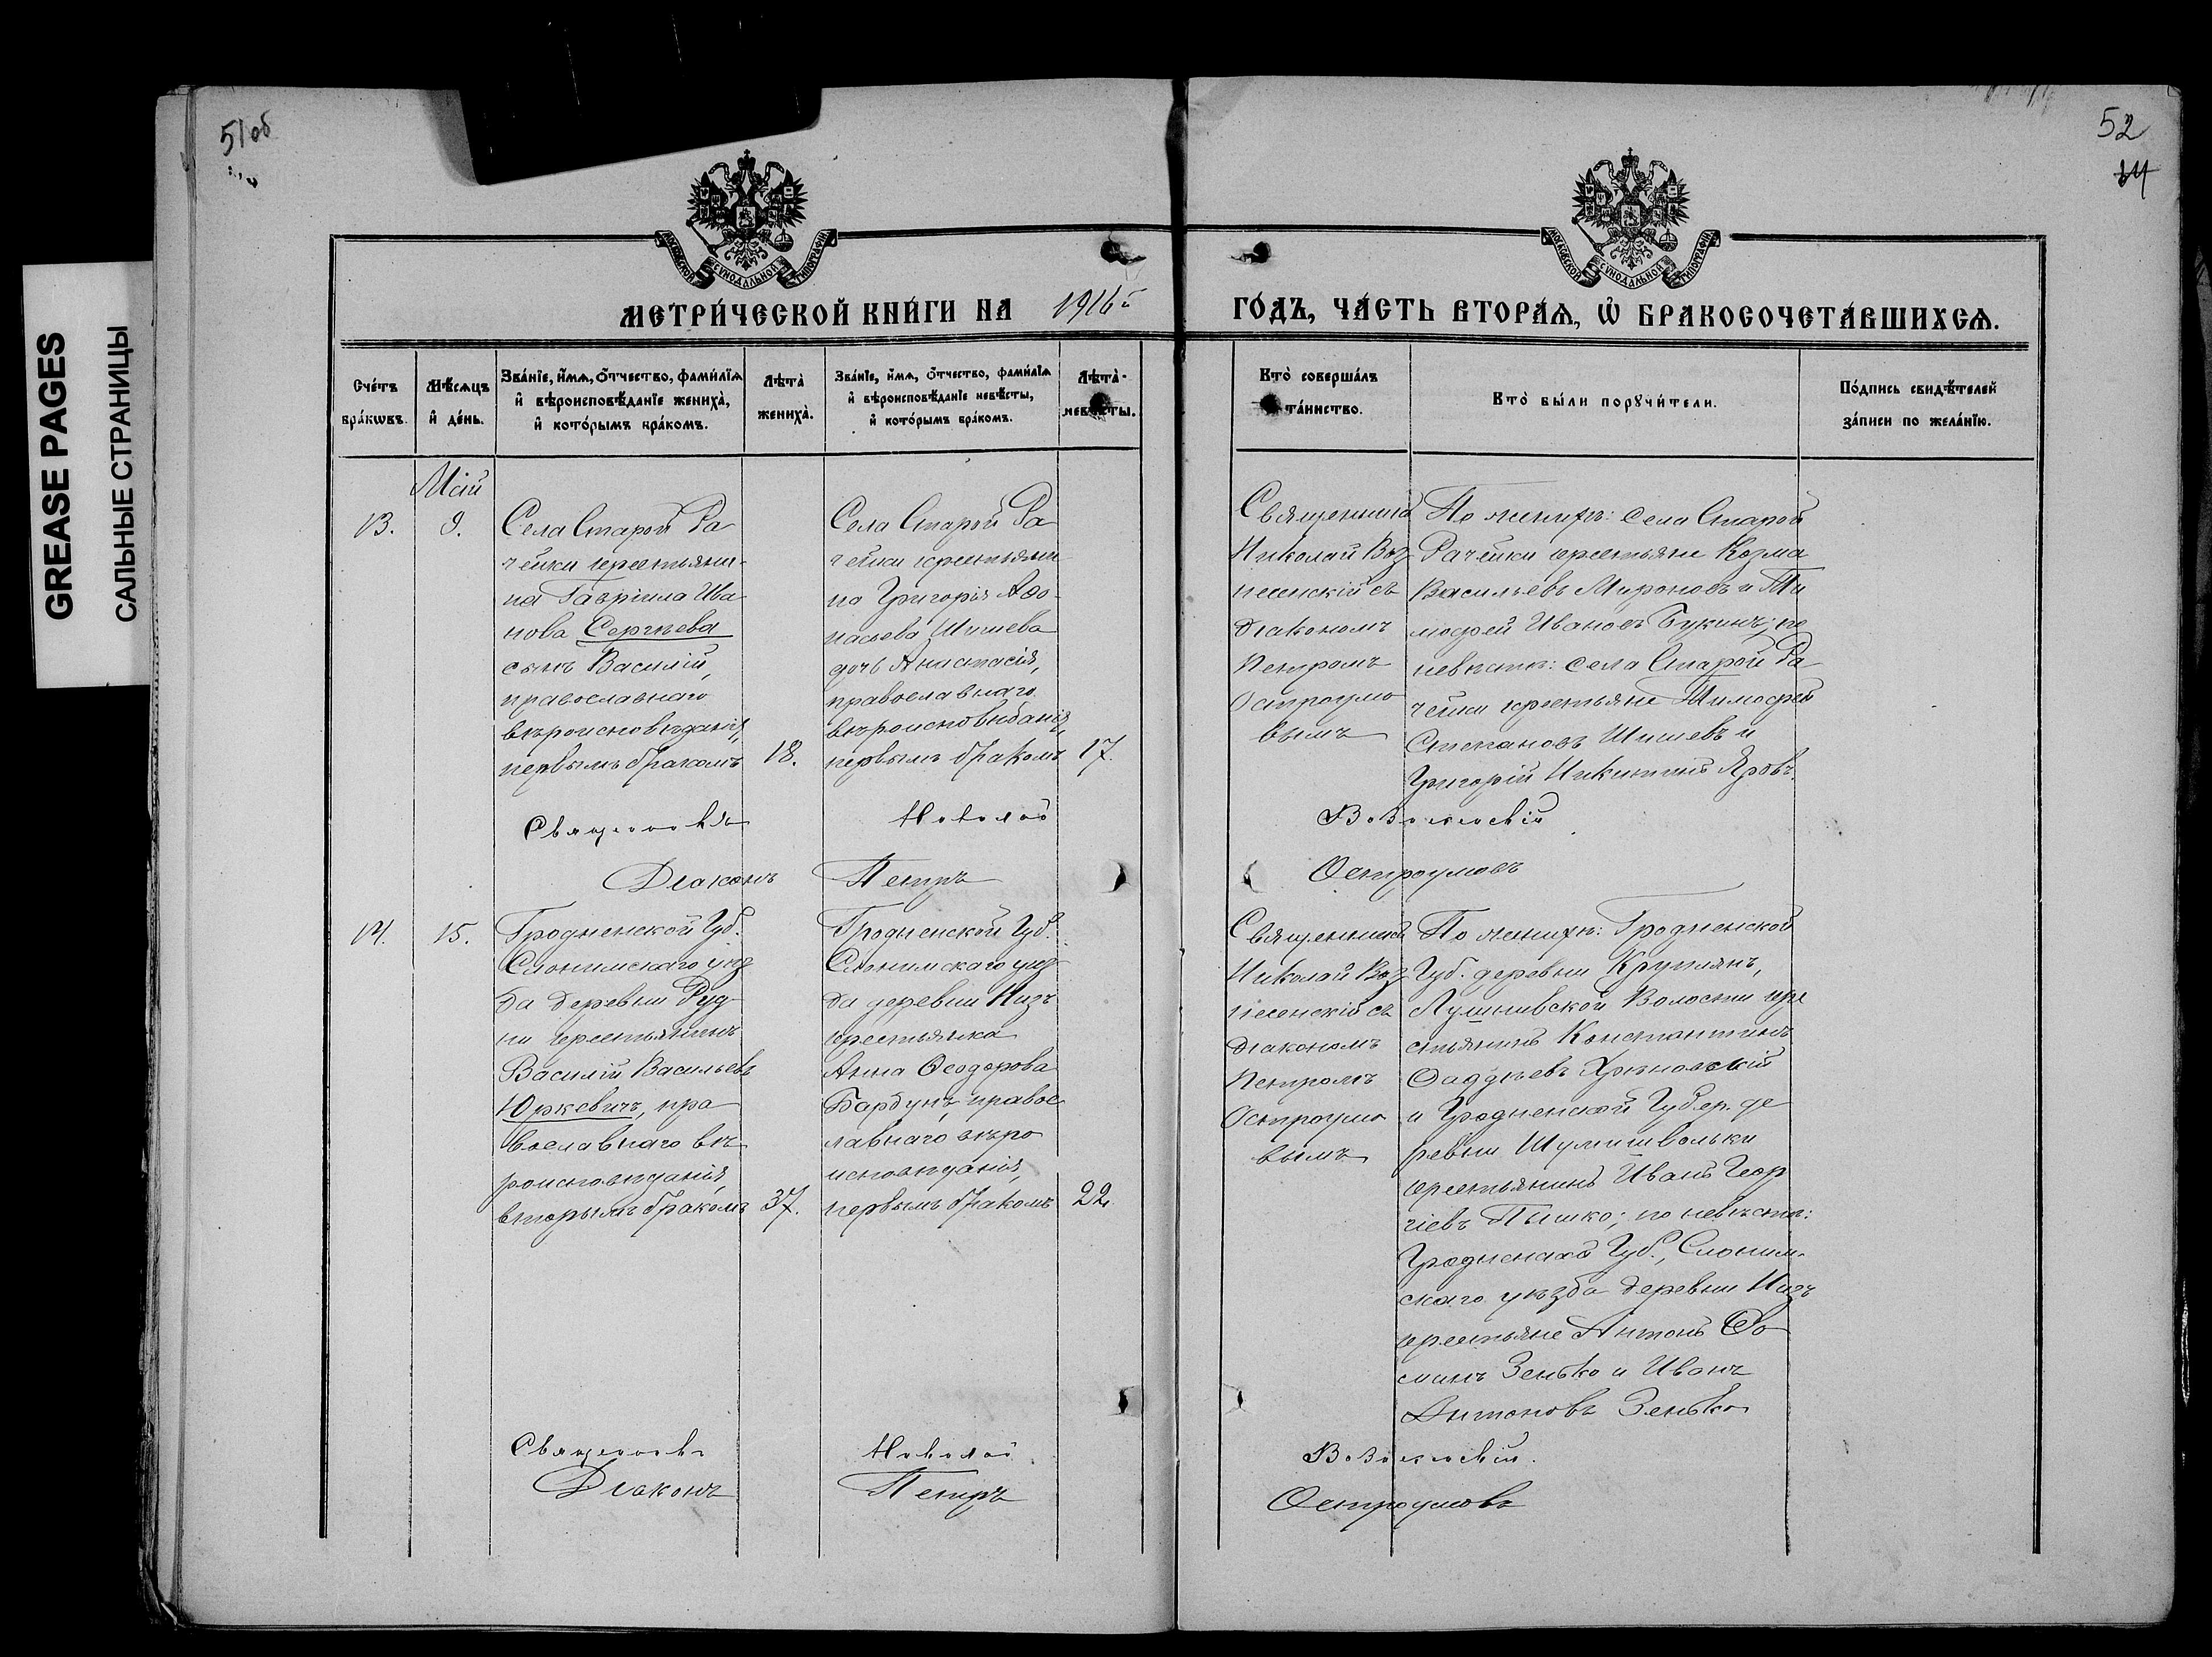 51об
52
14
GREASE PAGES
САЛЬНЫЕ СТРАНИЦЫ
МОСКОВСКОЙ СѴНОДАЛЬНОЙ ТИПОГРАФІИ
МОСКОВСКОЙ СѴНОДАЛЬНОЙ ТИПОГРАФІИ
МЕТРИ́ЧЕСКОЙ КНИ́ГИ НА 1916й ГО́ДЪ, ЧА́СТЬ ВТОРА́Ѧ, Ѡ҆ БРАКОСОЧЕТА́ВШИХСѦ.
Сче́тъ бра́кѡвъ.
Мѣ́сяцъ и҆ де́нь.
Зва́нїе, и҆́мѧ, ѻ҆́тчество, фами́лїѧ и҆ вѣроисповѣ́данїе жениха̀, и҆ кото́рымъ бра́комъ.
Лѣта̀ жениха̀.
Зва́нїе, и҆́мѧ, ѻ҆́тчество, фами́лїѧ и҆ вѣроисповѣ́данїе невѣ́сты, и҆ кото́рымъ бра́комъ.
Лѣта̀ невѣ́сты.
Кто̀ соверша́лъ та́инство.
Кто̀ бы́ли порꙋчи́тели.
По́дпись свидѣ́телей за́писи по жела́нїю.
Май
13.
9.
Села Старой Ра
чейки крестьяни-
на Гавріила Ива
нова Сергѣева
сынъ Василій,
православнаго
вѣроисповѣданія,
первымъ бракомъ
18.
Села Старой Ра
чейки крестьяни-
на Григорія Афо-
насьева Шишева
дочь Анастасія,
православнаго
вѣроисповѣданія,
первымъ бракомъ
17.
Священникъ
Николай Воз
несенскій съ
діакономъ
Петромъ
Остроумо
вымъ
По женихѣ: села Старой
Рачейки крестьяне Козма
Васильевъ Мироновъ и Ти
мофей Ивановъ Букинъ; по
невѣстѣ: села Старой Ра
чейки крестьяне Тимофей
Степановъ Шишевъ и
Григорій Никитинъ Яровъ.
Священникъ Николай Вознесенскій
Діаконъ Петръ Остроумовъ
14.
15.
Гродненской Губ.
Слонимскаго уѣз
да деревни Руд-
ни крестьянинъ
Василій Васильевъ
Юркевичъ, пра
вославнаго вѣ
роисповѣданія,
вторымъ бракомъ
37.
Гродненской Губ.
Слонимскаго уѣз
да деревни Низъ
крестьянка
Анна Ѳеодорова
Барбунъ, правос
лавнаго вѣро
исповѣданія,
первымъ бракомъ
22.
Священникъ
Николай Воз
несенскій съ
діакономъ
Петромъ
Остроумо
вымъ
По женихѣ: Гродненской
Губ. деревни
Волости кре
стьянинъ Константинъ
Фаддѣевъ
и Гродненской Губер. де
ревни
крестьянинъ Иванъ Геор
гіевъ Пышко; по невѣстѣ:
Гродненской Губ., Слоним-
скаго уѣзда деревни Низъ
крестьяне Антонъ Фо
минъ Зенько и Иванъ
Антоновъ Зенько
Священникъ Николай Вознесенскій.
Діаконъ Петръ Остроумовъ